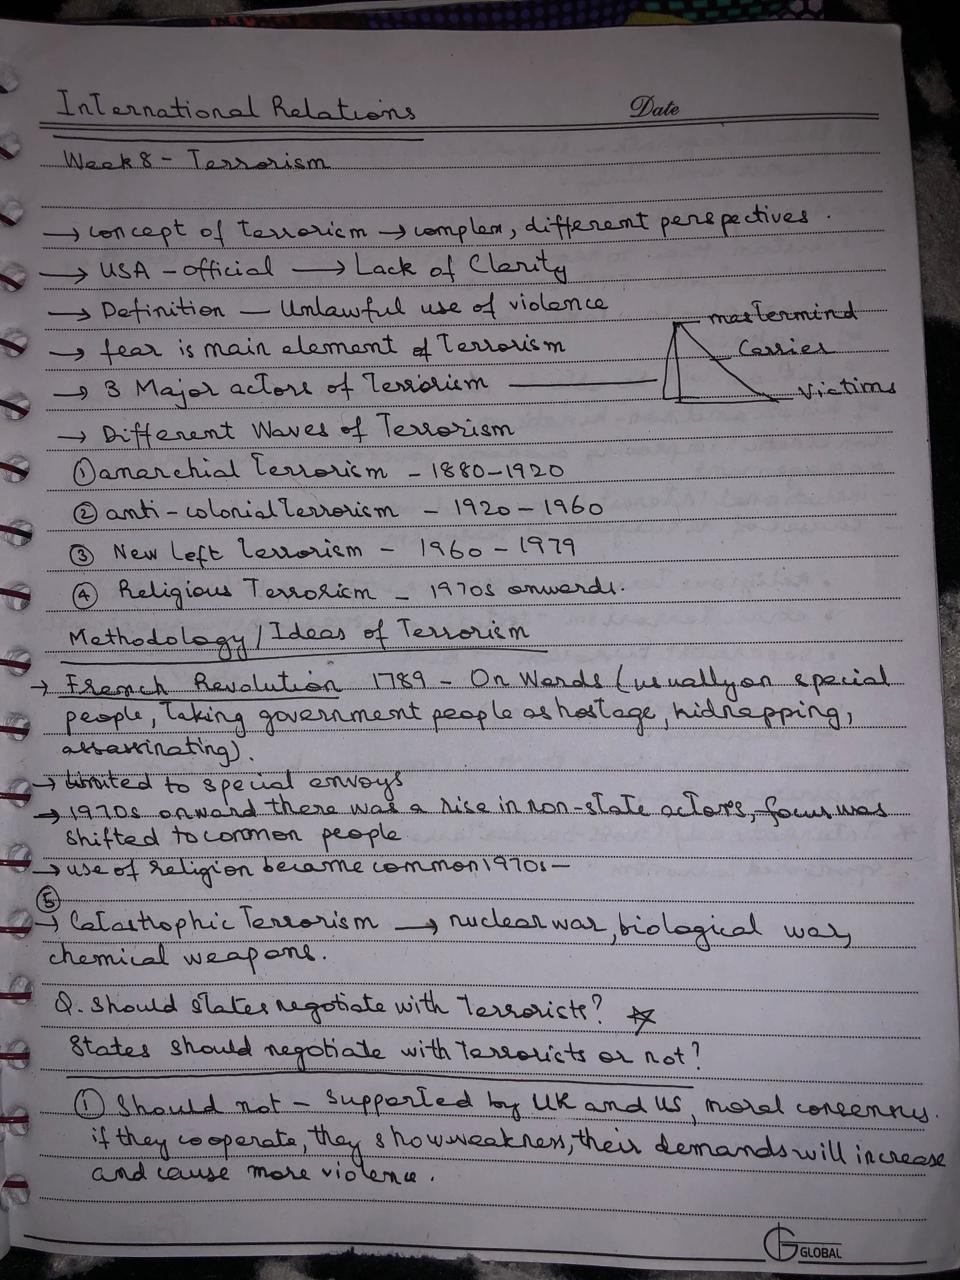 International Relations
Date
Week 8 - Terrorism
→ concept of Terrorism → complex, different perspectives.
→ USA - official → Lack of Clarity
→ Definition - Unlawful use of violence
mastermind
→ fear is main element of Terrorism
Carrier
→ 3 Major actors of Terrorism
Victims
→ Different Waves of Terrorism
① anarchial Terrorism - 1880-1920
② anti-colonial Terrorism - 1920-1960
③ New Left Terrorism - 1960-1979
④ Religious Terrorism - 1970s onwards.
Methodology/Ideas of Terrorism
→ French Revolution 1789 - On Words (usually on special
people, Taking government people as hostage, kidnapping,
assassinating).
→ limited to special envoys
→ 1970s onward there was a rise in non-state actors, focus was
shifted to common people
→ use of religion became common 1970s -
⑤
→ Catastrophic Terrorism → nuclear war, biological war,
chemical weapons.
Q. Should states negotiate with Terrorists? ☆
States should negotiate with Terrorists or not?
① Should not - supported by UK and US, moral consensus.
if they cooperate, they show weakness, their demands will increase
and cause more violence.
GLOBAL